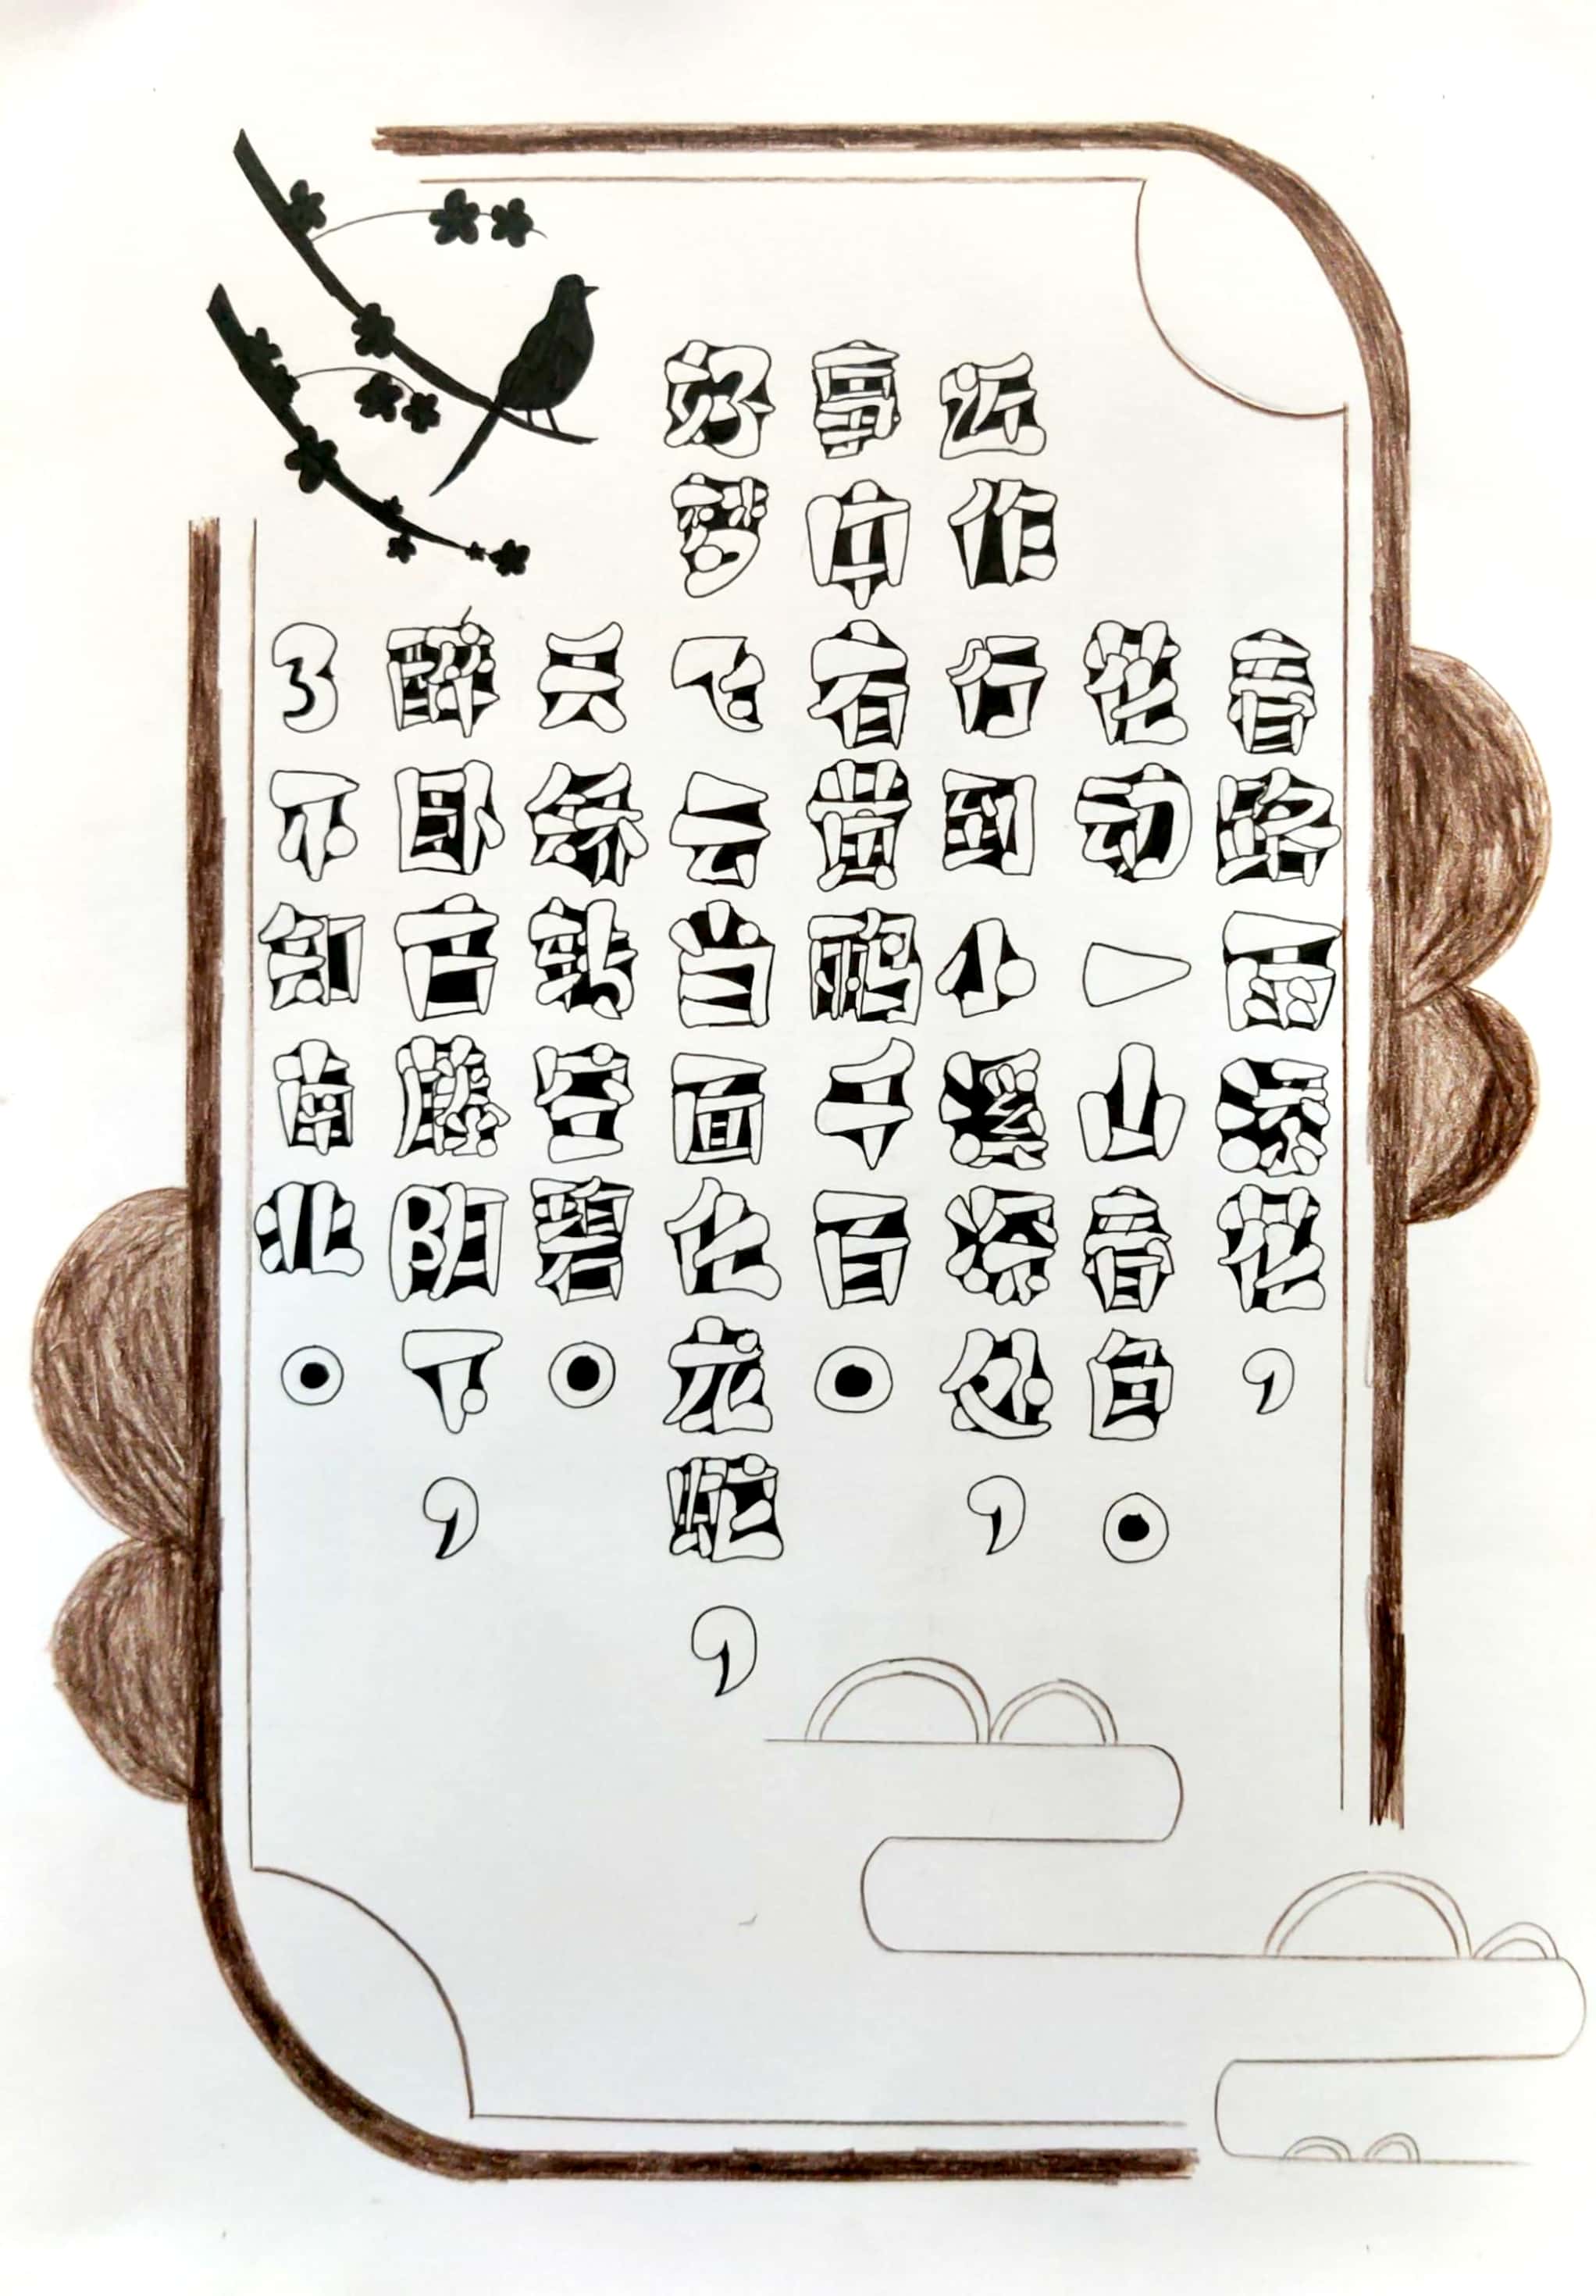 好事近
梦中作
春路雨添花，
花动一山春色。
行到小溪深处，
有黄鹂千百。
飞云当面化龙蛇，
夭矫转空碧。
醉卧古藤阴下，
了不知南北。